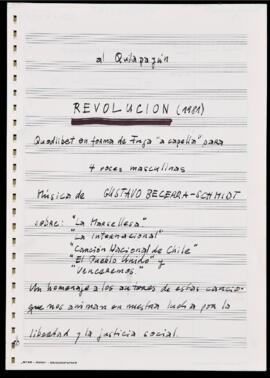 al Quilapayún
REVOLUCION (1981)
Quodlibet en forma de Fuga "a capella" para
4 voces masculinas
Música de GUSTAVO BECERRA-SCHMIDT
sobre: "La Marsellesa"
"La Internacional"
"Canción Nacional de Chile"
"El Pueblo Unido" y
"Venceremos"
Un homenaje a los autores de estas cancio-
que nos animan en nuestra lucha por la
libertad y la justicia social.